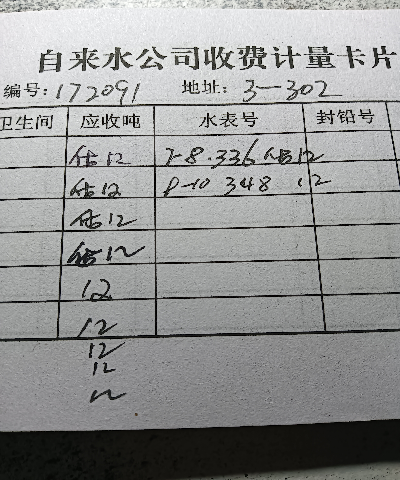 自来水公司收费计量卡片
编号:172091 地址:3-302
卫生间 应收吨 水表号 封铅号
估12 7-8.336 估12
估12 8-10 348 12
估12
估12
12
12
12
12
12